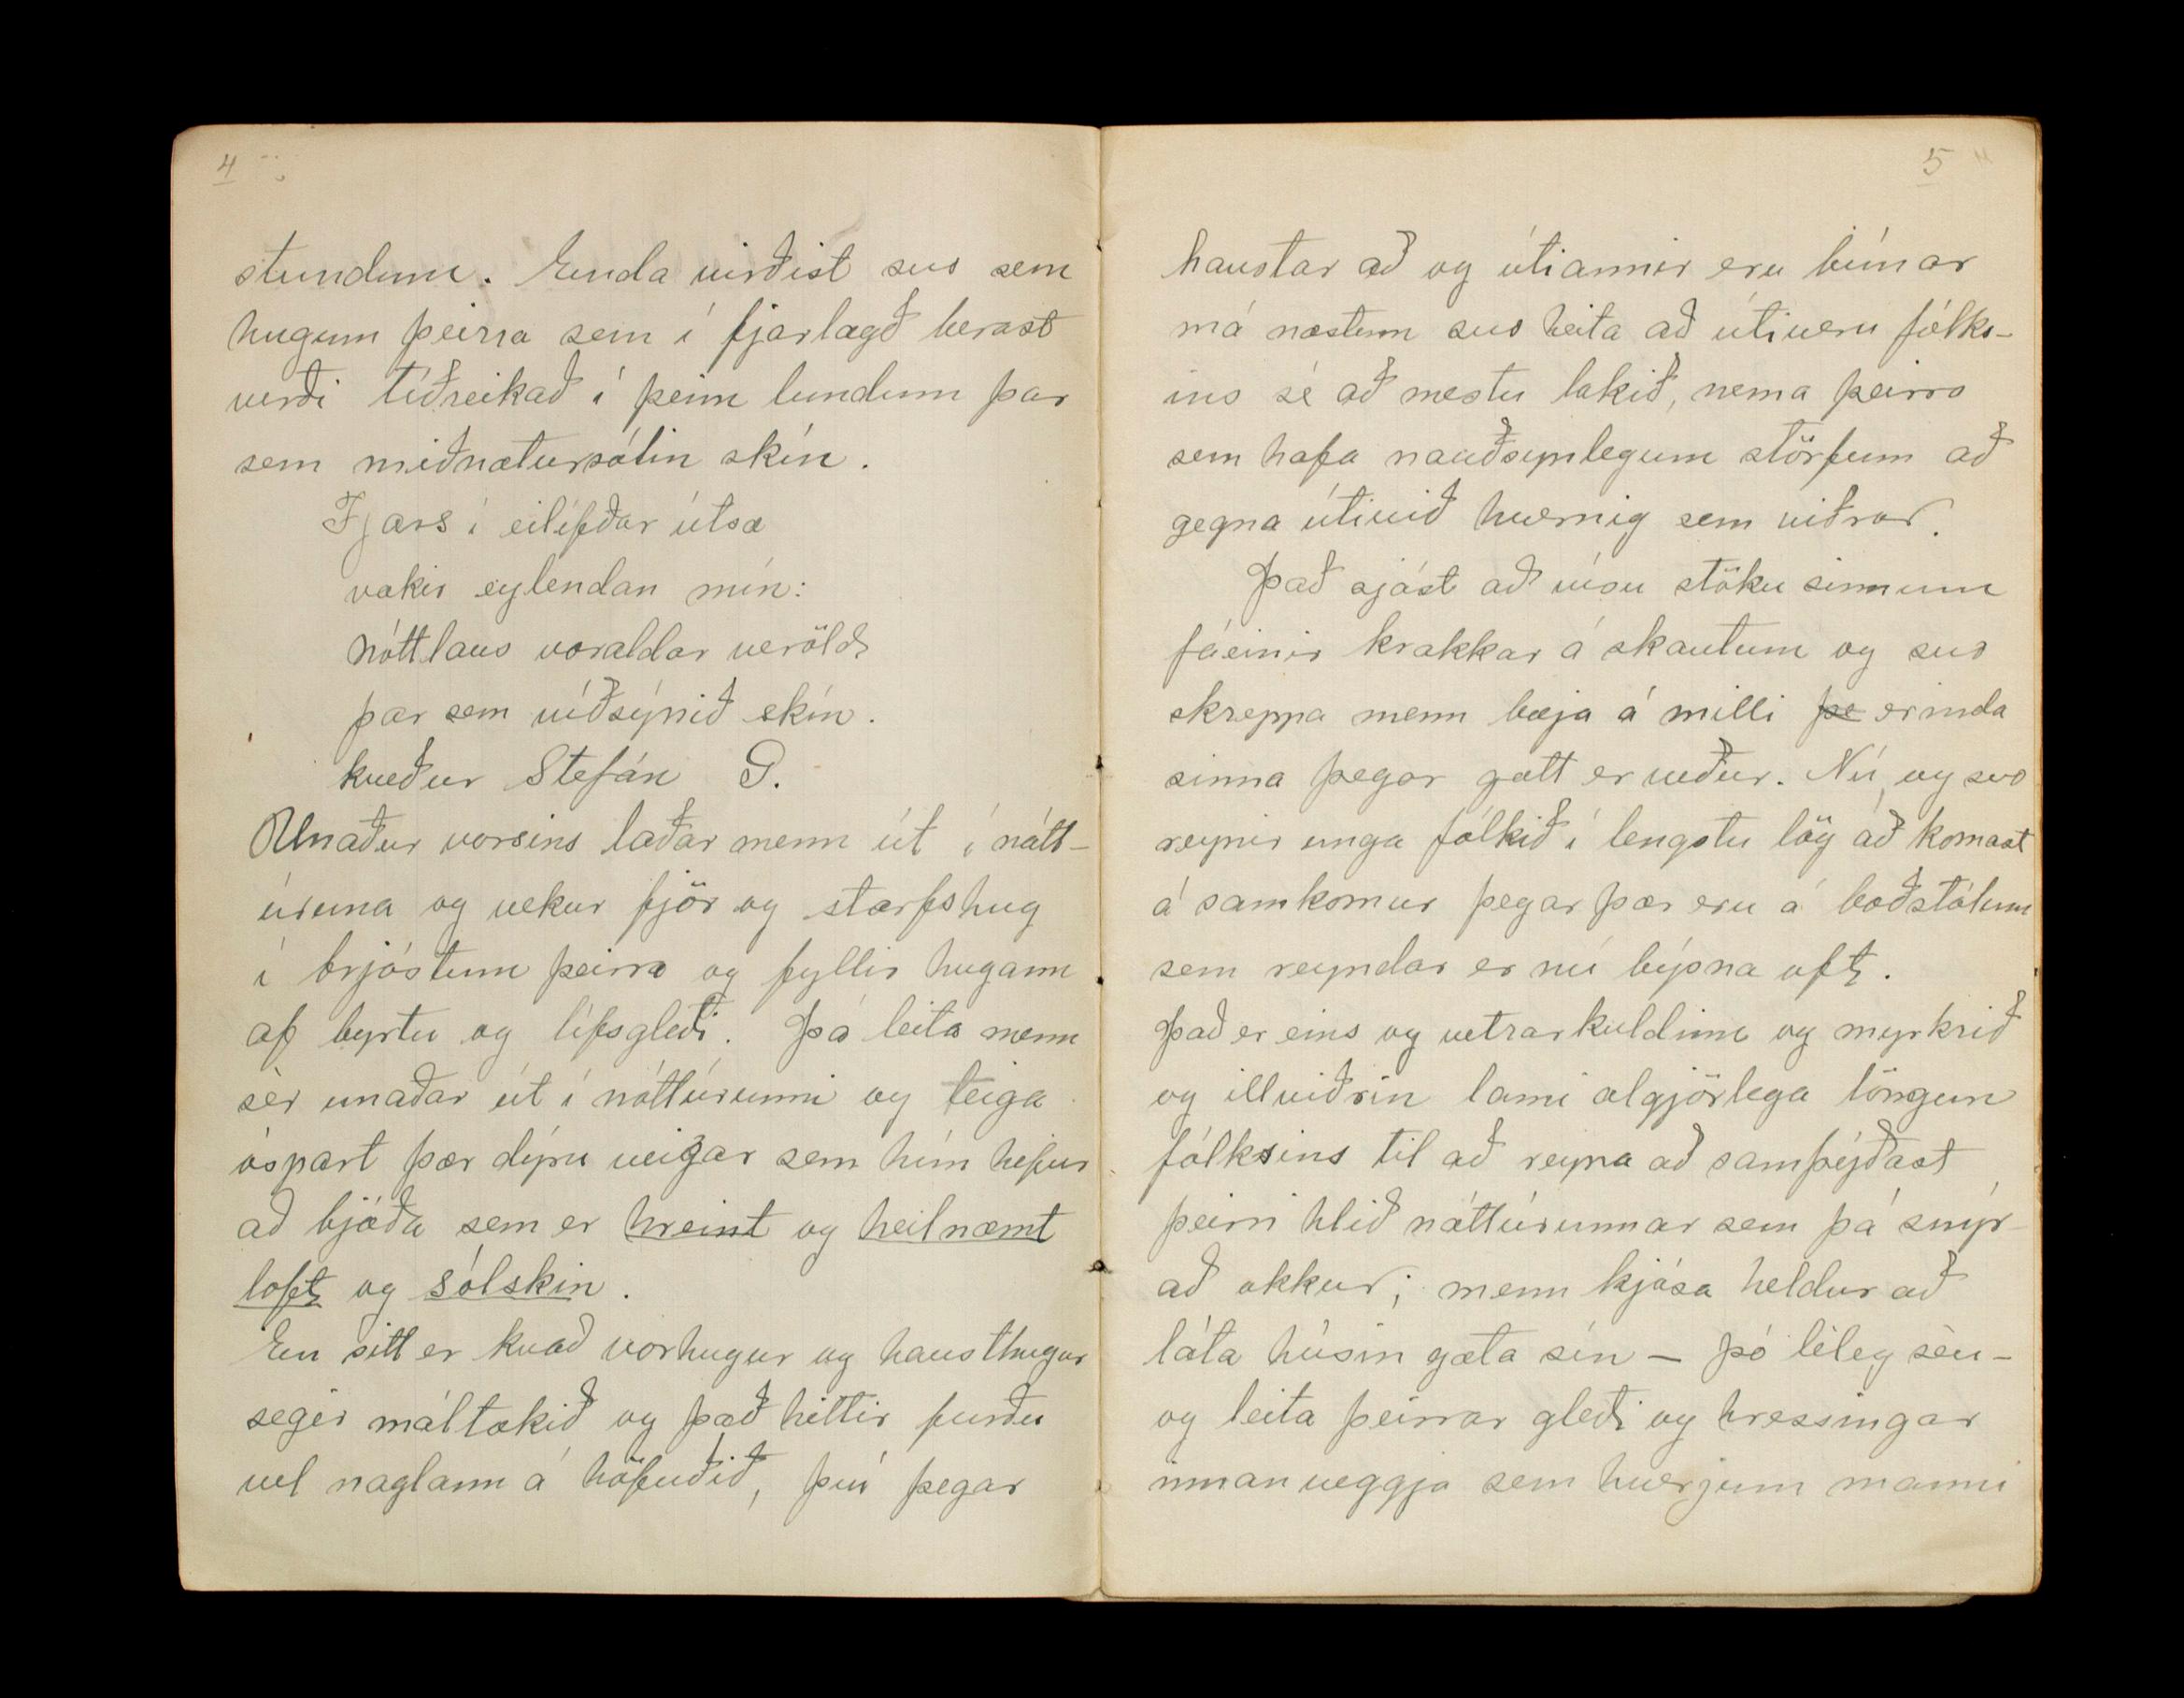 4
stundum. Enda virðist svo sem
hugum þeirra sem í fjarlægð berast
verði tíðreikað í þeim lundum þar
sem miðnætursólin skín.
Fjærs í eilífðar útsæ
vakir eylendan mín:
Nóttlaus voraldar veröld,
þar sem víðsýnið skín.
kveður Stefán G.
Unaður vorsins laðar menn út í nátt-
úruna og vekur fjör og starfshug
í brjóstum þeirra og fyllir hugann
af byrtu og lífsgleði. Þá leita menn
sèr unaðar út í náttúrunni og teiga
óspart þær dýru veigar sem hún hefur
að bjóða sem er hreint og heilnæmt
loft, og sólskin.
En sitt er kvað vorhugur og hausthugur
segir máltækið og það hittir furðu
vel naglann á höfuðið, því þegar
5
haustar að og útiannir eru búnar
má næstum svo heita að útiveru fólks-
ins sé að mestu lokið, nema þeirra
sem hafa nauðsynlegum störfum að
gegna útivið hvernig sem viðrar.
Það sjást að vísu stöku sinnum
fáeinir krakkar á skautum og svo
skreppa menn bæja á milli þe erinda
sinna þegar gott er veður. Nú, og svo
reynir unga fólkið í lengstu lög að komast
á samkomur þegar þær eru á boðstólum
sem reyndar er nú býsna oft.
Það er eins og vetrarkuldinn og myrkrið
og illviðrin lami algjörlega löngun
fólksins til að reyna að samþýðast
þeirri hlið náttúrunnar sem þá snýr
að okkur; menn kjósa heldur að
láta húsin gæta sín – þó lèleg sèu –
og leita þeirrar gleði og hressingar
innan veggja sem hverjum manni